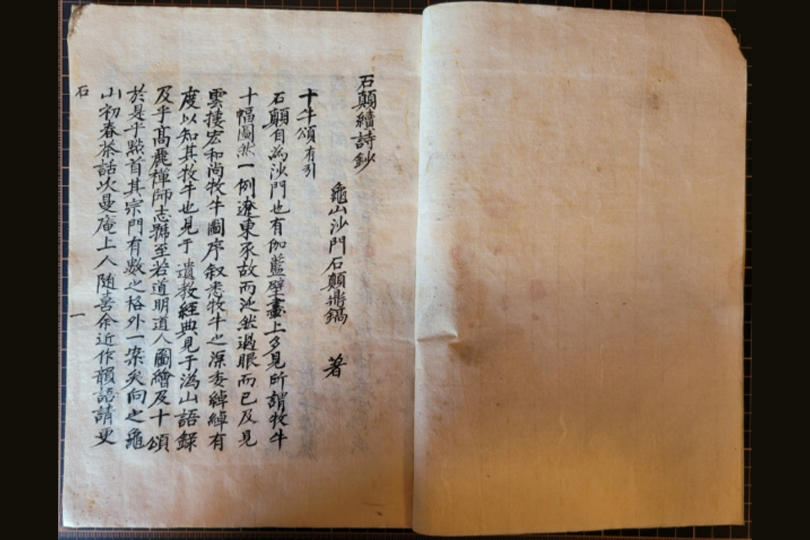 石顛續詩鈔
龜山沙門石顛 著
十牛頌有引
石顛自為沙門也有伽藍壁畫上多見所謂牧牛
十幅圖然一例遼東豕故而泛然過眼而已及見
雲棲宏和尚牧牛圖序叙悉牧牛之深委綽綽有
度以知其牧牛也見于遺教經典見于溈山語録
及乎髙麗禪師志號至若道明道人圖繪及十頌
於是乎點首其宗門有數之格外一案矣向之龜
山初春茶話次曼庵上人随喜余近作韻語請更
石 一